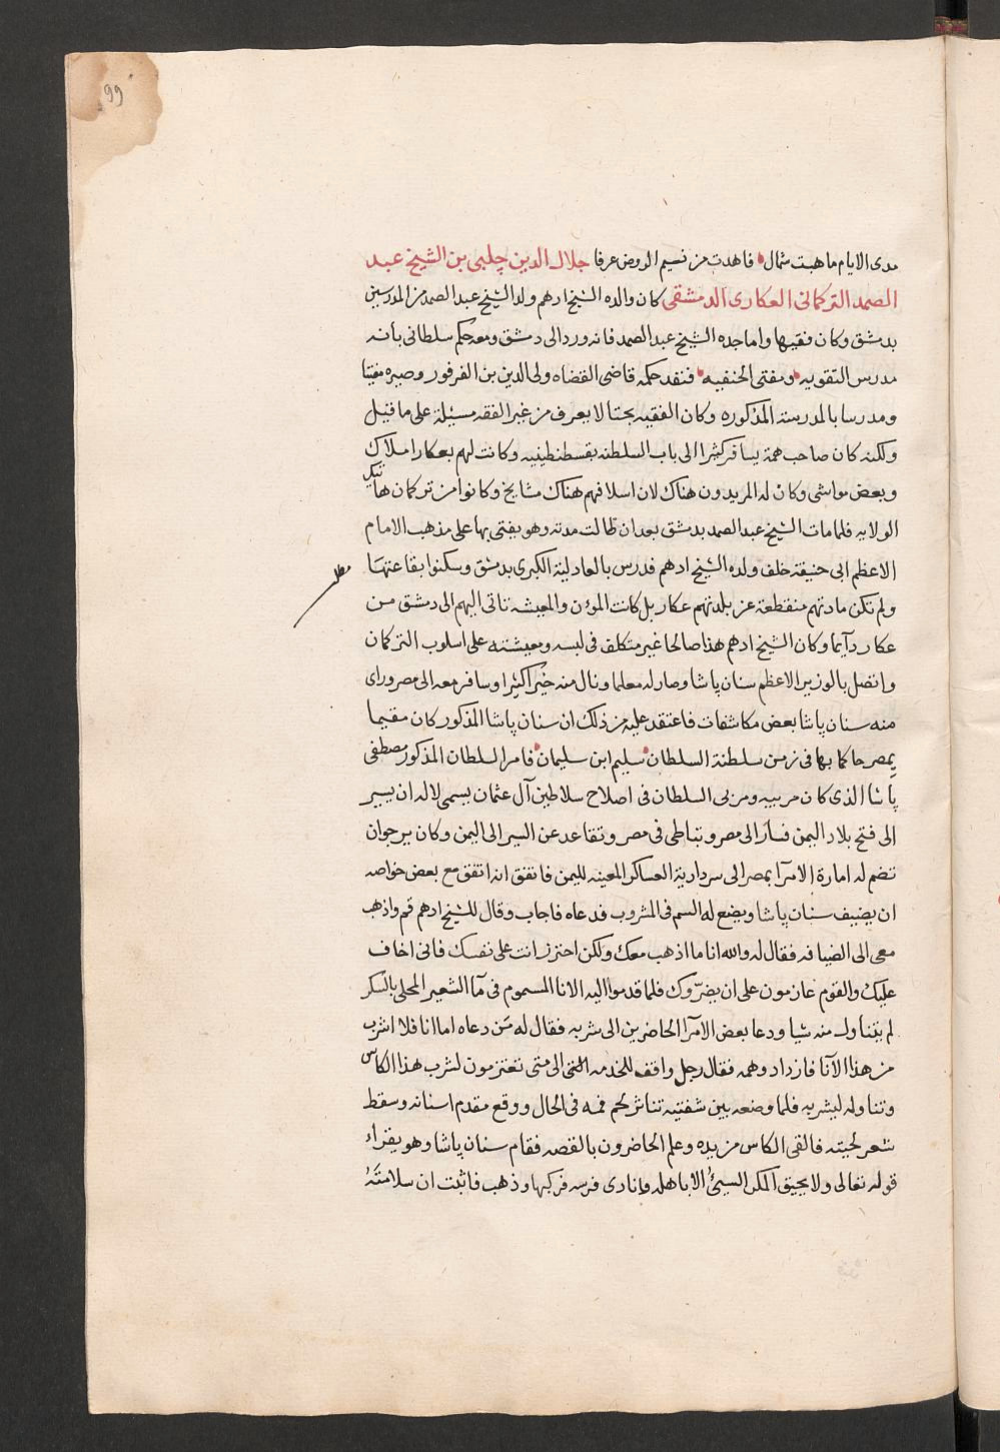 99
مدى الايام ما هبت شمال فاهدت من نسيم الروض عرفا جلال الدين چلبى بن الشيخ عبد
الصمد التركمانى العكارى الدمشقى كان والده الشيخ ادهم ولد الشيخ عبد الصمد من المدرسين
بدمشق وكان فقيها واما جده الشيخ عبد الصمد فانه ورد الى دمشق ومعه حكم سلطانى بانه
مدرس التقويه ومفتى الحنفيه فنفد حكمه قاضى القضاه ولى الدين بن الفرفور وصيره مفتيا
ومدرسا بالمدرسة المذكوره وكان الفقيه بحتا لا يعرف من غير الفقه مسئلة على ما قيل
ولكنه كان صاحب همة يسافر كثيرا الى باب السلطنه بقسطنطينيه وكانت لهم بعكار املاك
وبعض مواشى وكان له المريدون هناك لان اسلافهم هناك مشايخ وكانوا من تركمان هاتيك
الولايه فلما مات الشيخ عبد الصمد بدمشق بعد ان طالت مدته وهو يفتى بها على مذهب الامام
الاعظم ابى حنيفة خلف ولده الشيخ ادهم فدرس بالعادلية الكبرى بدمشق وسكنوا بقاعتها
ولم تكن مادتهم منقطعة عن بلدتهم عكار بل كانت المؤن والمعيشه تاتى اليهم الى دمشق من
عكار دآيما وكان الشيخ ادهم هذا صالحا غير متكلف فى لبسه ومعيشته على اسلوب التركمان
واتصل بالوزير الاعظم سنان پاشا وصار له معلما ونال منه خيرا كثيرا وسافر معه الى مصر وراى
منه سنان پاشا بعض مكاشفات فاعتقد عليه من ذلك ان سنان پاشا المذكور كان مقيما
بمصر حاكما بها فى زمن سلطنة السلطان سليم ابن سليمان فامر السلطان المذكور مصطفى
پاشا الذى كان مربيه ومربى السلطان فى اصلاح سلاطين آل عثمان يسمى لاله ان يسير
الى فتح بلاد اليمن فسار الى مصر وتباطى فى مصر وتقاعد عن السير الى اليمن وكان يرجوان
تضم له امارة الامرآ بمصر الى سردارية العساكر المعينه لليمن فاتفق انه اتفق مع بعض خواصه
ان يضيف سنان پاشا ويضع له السم فى المشروب فدعاه فاجاب وقال للشيخ ادهم قم واذهب
معى الى الضيافه فقال له والله انا ما اذهب معك ولكن احترز انت على نفسك فانى اخاف
عليك والقوم عازمون على ان يضرّوك فلما قدموا اليه الانا المسموم فى مآ الشعير المحلى بالسكر
لم يتناول منه شيا ودعا بعض الامرآ الحاضرين الى شربه فقال له من دعاه اما انا فلا اشرب
من هذا الآنا فازداد وهمه فقال رجل واقف للخدمه الى متى تعتزمون لشرب هذا الكاس
وتناوله ليشربه فلما وضعه بين شفتيه تناثر لحم فمه فى الحال ووقع مقدم اسنانه وسقط
شعر لحيته فالقى الكاس من يده وعلم الحاضرون بالقصه فقام سنان پاشا وهو يقراء
قوله تعالى ولا يحيق المكر السيئ الا باهله ونادى فرسه فركبها وذهب فاثبت ان سلامته